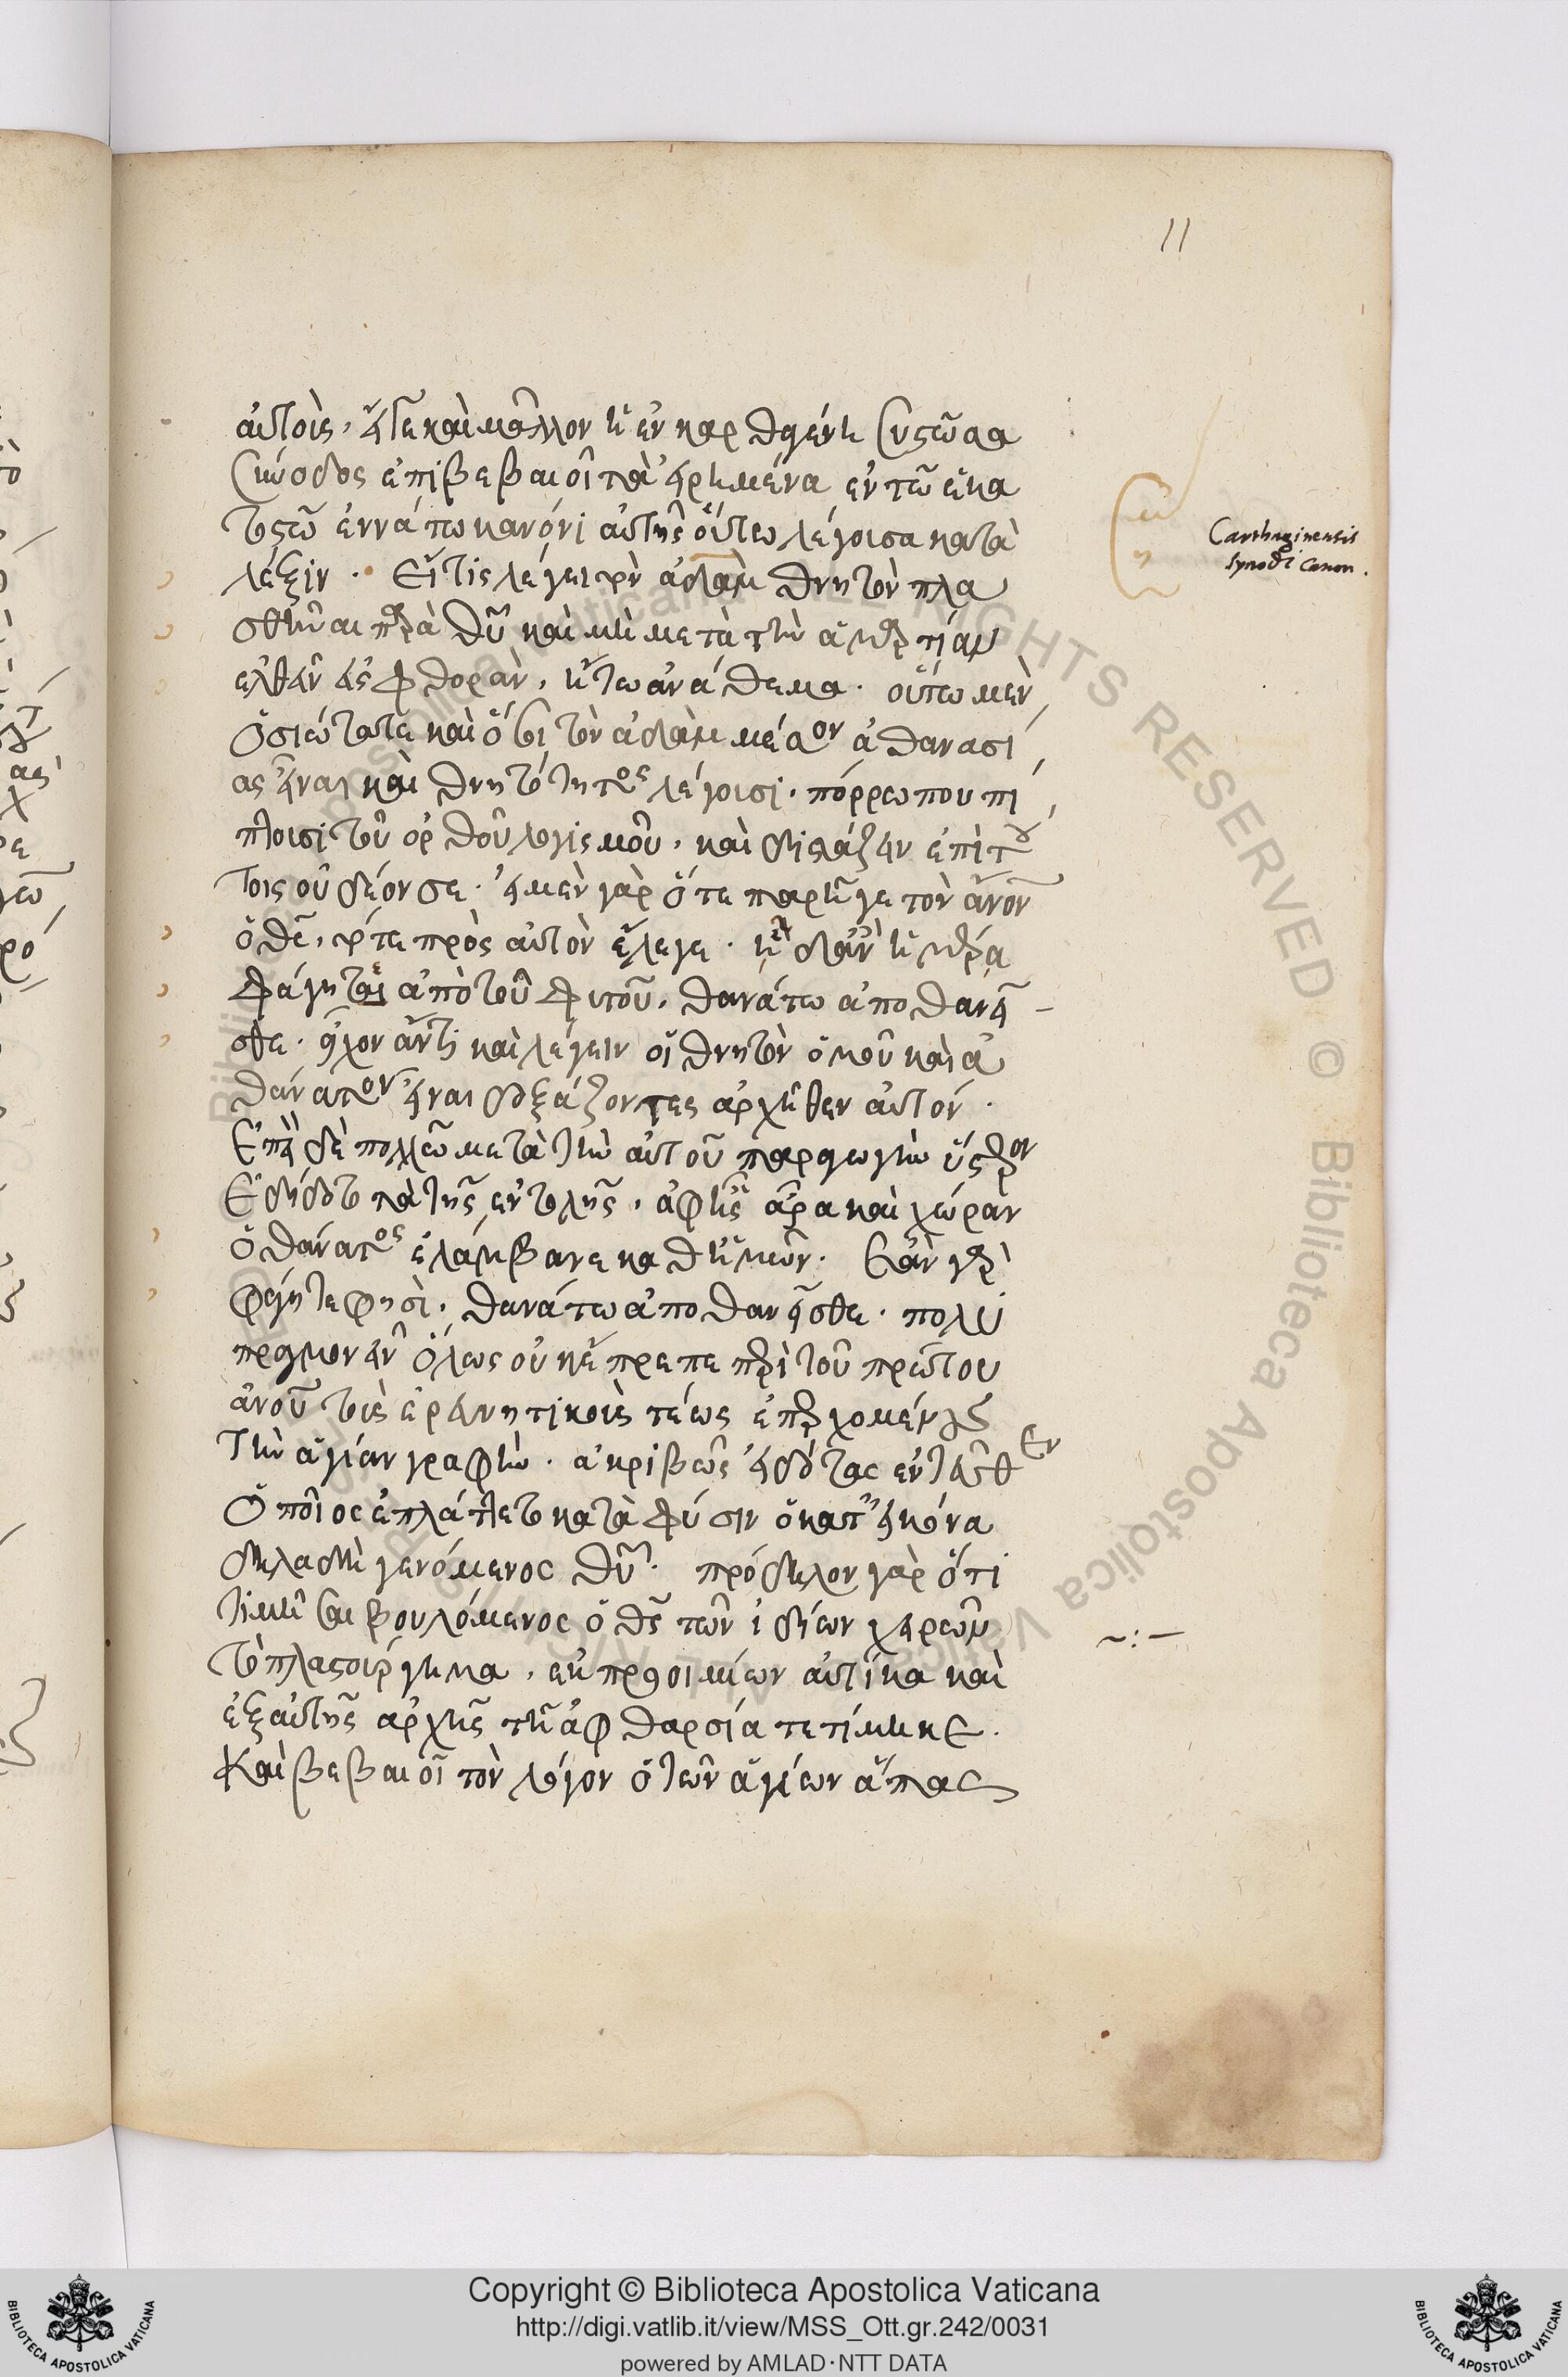 11
αὐτοῖς, εἴτε καὶ μᾶλλον ἡ ἐν καρθαγένῃ συστᾶσα
σύνοδος ἐπιβεβαιοῖ τὰ εἰρημένα ἐν τῶ ἑκα
τοστῶ ἐννάτω κανόνι αὐτῆς οὕτω λέγουσα κατὰ
λέξιν. Εἴ τις λέγει τὸν ἀδὰμ θνητὸν πλα
σθῆναι παρὰ θῦ καὶ μὴ μετὰ τὴν ἁμαρτίαν
ἐλθεῖν εἰς φθορὰν, ἤτω ἀνάθεμα. οὕτω μὲν
Ὁσιώτατε καὶ ὅτι τὸν ἀδὰμ μέσον ἀθανασί
ας εἶναι καὶ θνητότητος λέγουσι, πόρρω που πί
πτουσι τοῦ ὀρθοῦ λογισμοῦ, καὶ διστάζειν ἐπὶ τού
τοις οὐ δέον σε. εἰ μὲν γὰρ ὅτε παρῆγε τὸν ἄνον
ὁ θς, τότε πρὸς αὐτὸν ἔλεγε. ᾗ δἂν ἡμέρα
φάγηται ἀπὸ τοῦ φυτοῦ, θανάτω ἀποθανεῖ
σθε. εἶχον ἄν τι καὶ λέγειν οἱ θνητὸν ὁμοῦ καὶ ἀ
θάνατον εἶναι δοξάζοντες ἀρχῆθεν αὐτόν.
Ἐπεὶ δὲ πολλῶ μετὰ τὴν αὐτοῦ παραγωγὴν ὕστερον
Ἐδίδοτο τὰ τῆς ἐντολῆς, ἀφ' ἧς ἄρα καὶ χώραν
ὁ θάνατος ἐλάμβανε καθ' ἡμῶν. Ἐὰν γὰρ
φάγητε φησὶ, θανάτω ἀποθανεῖσθε. πολυ
πραγμονεῖν ὅλως οὐκ ἔπρεπε περὶ τοῦ πρώτου
ἀνοῦ τοῖς ἐρευνητικοῖς τέως ἐπερχομένοις
τὴν ἁγίαν γραφὴν. ἀκριβῶς εἰδότας ἐντεῦθεν
Ὁποῖος ἐπλάττετο κατὰ φύσιν ὁ κατ' εἰκόνα
δηλαδὴ γενόμενος θῦ. πρόδηλον γὰρ ὅτι
τιμῆσαι βουλόμενος ὁ θς τῶν ἰδίων χειρῶν
τὸ πλαστούργημα, ἐκ προοιμίων αὐτίκα καὶ
ἐξ αὐτῆς ἀρχῆς τῇ ἀφθαρσία τετίμηκε.
Καὶ βεβαιοῖ τὸν λόγον ὁ τῶν ἁγίων ἅπας
Carthaginensis
Synodi Canon.
~:—
Copyright © Biblioteca Apostolica Vaticana
http://digi.vatlib.it/view/MSS_Ott.gr.242/0031
powered by AMLAD·NTT DATA
BIBLIOTECA APOSTOLICA VATICANA
BIBLIOTECA APOSTOLICA VATICANA